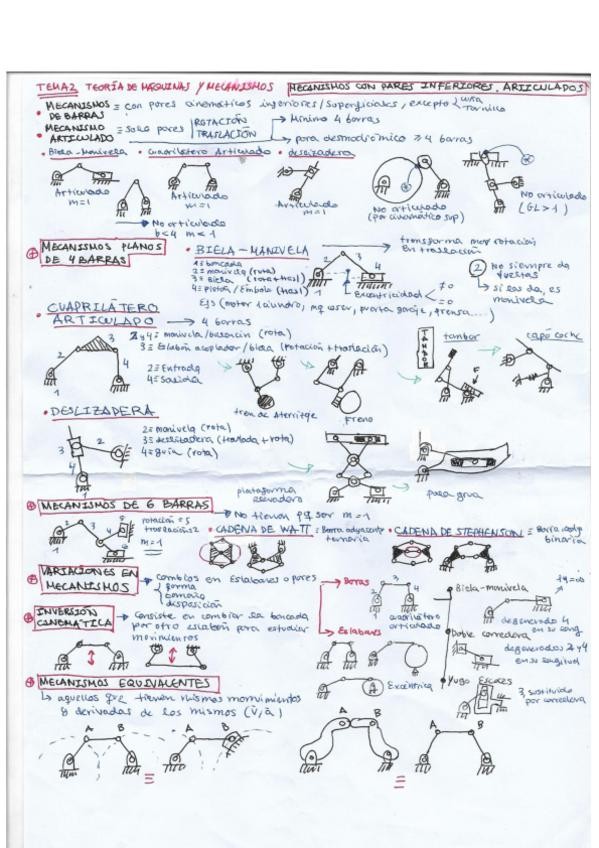 TEMA2 TEORÍA DE MÁQUINAS Y MECANISMOS MECANISMOS CON PARES INFERIORES, ARTICULADOS
• MECANISMOS DE BARRAS ≡ con pares cinemáticos inferiores/superficiales, excepto Tornillo
• MECANISMO ARTICULADO ≡ solo pares ROTACIÓN TRASLACIÓN
→ Mínimo 4 barras
→ para desmodrómico ≥ 4 barras
• Biela-Manivela • Cuadrilátero Articulado • deslizadera
Articulado m=1
No articulado b<4 m<1
Articulado m=1
Articulado m=1
No articulado (par cinemático sup)
No articulado (GL>1)
MECANISMOS PLANOS DE 4 BARRAS
• BIELA-MANIVELA → transforma mov rotación en traslación
1≡ bancada
2≡ manivela (rota)
3≡ Biela (rota+trasl)
4≡ Pistón/Émbolo (trasl)
Excentricidad ≠0 =0
2 No siempre da vueltas
→ si las da, es manivela
• CUADRILÁTERO ARTICULADO → 4 barras
2 y 4≡ manivela/balancín (rota)
3≡ Eslabón acoplador/biela (rotación+traslación)
2≡ Entrada
4≡ Salida
tren de aterrizaje
freno
TAMBOR
tambor
capó coche
• DESLIZADERA
2≡ manivela (rota)
3≡ deslizadera (traslada+rota)
4≡ guía (rota)
plataforma elevadora
pala grua
MECANISMOS DE 6 BARRAS → No tienen pq ser m=1
rotación=5
traslación=2
m=1
• CADENA DE WATT ≡ Barra adyacente ternaria
• CADENA DE STEPHENSON ≡ Barra binaria
VARIACIONES EN MECANISMOS → cambios en Eslabones o pares
forma
tamaño
disposición
→ Barras
cuadrilátero articulado
→ Eslabones
Excéntrica
Biela-manivela
degenerado 4 en su long
Doble corredera
degenerados 2 y 4 en su longitud
Yugo Escocés
3, sustituido por corredera
INVERSIÓN CINEMÁTICA → Consiste en cambiar la bancada por otro eslabón para estudiar movimientos
MECANISMOS EQUIVALENTES
↳ aquellos que tienen mismos movimientos y derivadas de los mismos (v̄, ā)
A B
A B
≡
A B
A B
≡